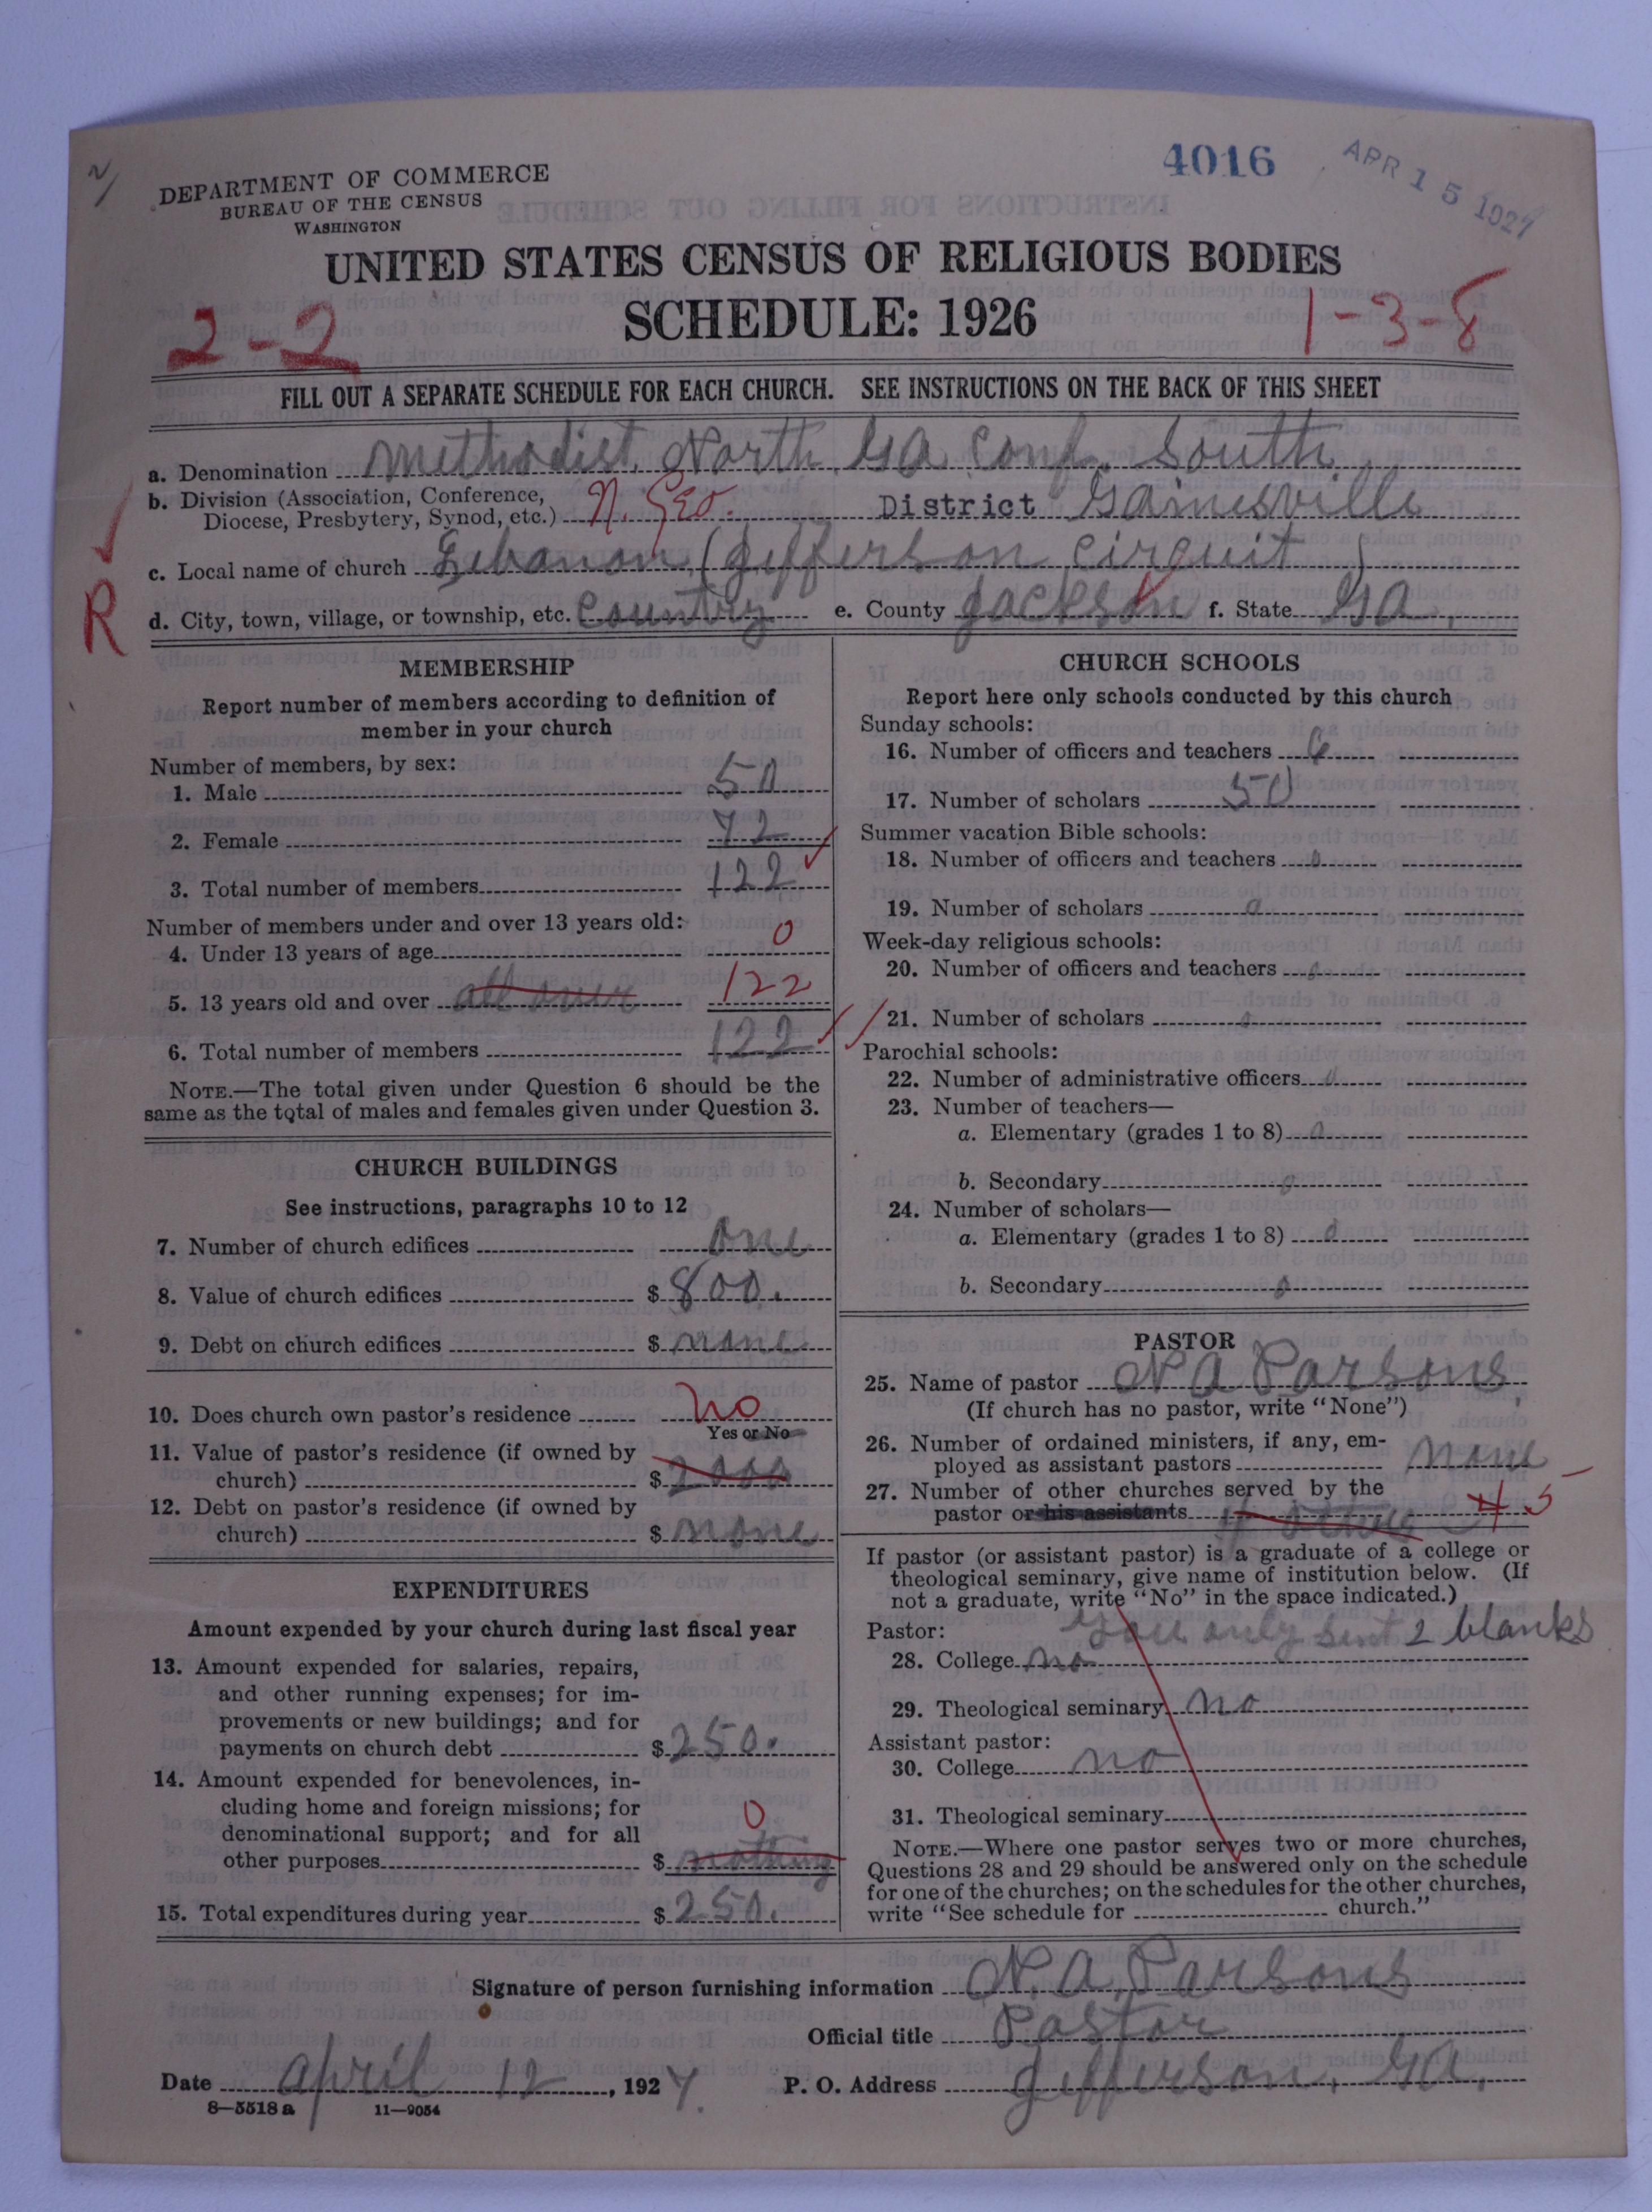 4016
APR 15 1927
DEPARTMENT OF COMMERCE
BUREAU OF THE CENSUS
WASHINGTON
UNITED STATES CENSUS OF RELIGIOUS BODIES
SCHEDULE: 1926
2-2
1-3-8
FILL OUT A SEPARATE SCHEDULE FOR EACH CHURCH. SEE INSTRUCTIONS ON THE BACK OF THIS SHEET
a. Denomination Methodist North Ga Conf. South
b. Division (Association, Conference,
Diocese, Presbytery, Synod, etc.) N. Geo. District Gainesville
c. Local name of church Lebanon (Jefferson circuit)
R
d. City, town, village, or township, etc. Country e. County Jackson f. State Ga.
MEMBERSHIP
Report number of members according to definition of
member in your church
Number of members, by sex:
1. Male 50
2. Female 72
3. Total number of members 122
Number of members under and over 13 years old:
4. Under 13 years of age 0
5. 13 years old and over all over 122
6. Total number of members 122
NOTE.—The total given under Question 6 should be the
same as the total of males and females given under Question 3.
CHURCH BUILDINGS
See instructions, paragraphs 10 to 12
7. Number of church edifices One
8. Value of church edifices $ 800.
9. Debt on church edifices $ none
10. Does church own pastor's residence No
Yes or No
11. Value of pastor's residence (if owned by
church) $ 2000
12. Debt on pastor's residence (if owned by
church) $ none
EXPENDITURES
Amount expended by your church during last fiscal year
13. Amount expended for salaries, repairs,
and other running expenses; for im-
provements or new buildings; and for
payments on church debt $ 250.
14. Amount expended for benevolences, in-
cluding home and foreign missions; for
denominational support; and for all
0
other purposes $ nothing
15. Total expenditures during year $ 250.
CHURCH SCHOOLS
Report here only schools conducted by this church
Sunday schools:
16. Number of officers and teachers 6
17. Number of scholars 50
Summer vacation Bible schools:
18. Number of officers and teachers 0
19. Number of scholars 0
Week-day religious schools:
20. Number of officers and teachers 0
21. Number of scholars 0
Parochial schools:
22. Number of administrative officers 0
23. Number of teachers—
a. Elementary (grades 1 to 8) 0
b. Secondary 0
24. Number of scholars—
a. Elementary (grades 1 to 8) 0
b. Secondary 0
PASTOR
25. Name of pastor N A Parsons
(If church has no pastor, write "None")
26. Number of ordained ministers, if any, em-
ployed as assistant pastors none
27. Number of other churches served by the
pastor or his assistants 4 others 4 5
If pastor (or assistant pastor) is a graduate of a college or
theological seminary, give name of institution below. (If
not a graduate, write "No" in the space indicated.)
Pastor: You only sent 2 blanks
28. College no
29. Theological seminary no
Assistant pastor:
30. College no
31. Theological seminary
NOTE.—Where one pastor serves two or more churches,
Questions 28 and 29 should be answered only on the schedule
for one of the churches; on the schedules for the other churches,
write "See schedule for church."
Signature of person furnishing information N. A. Parsons
Official title Pastor
Date April 12, 1927. P. O. Address Jefferson, Ga.
8—5518 a 11—9054